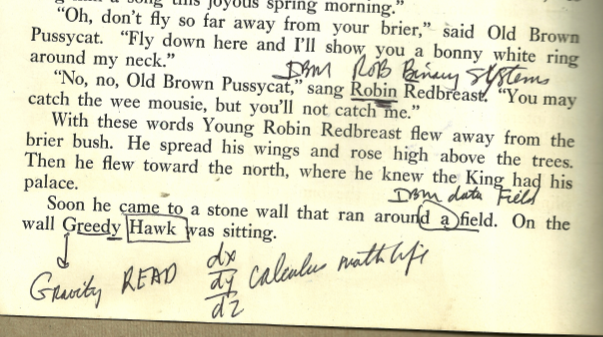 a song this joyous spring morning."
"Oh, don't fly so far away from your brier," said Old Brown
Pussycat. "Fly down here and I'll show you a bonny white ring
around my neck."
DBM ROB Binary Systems
"No, no, Old Brown Pussycat," sang Robin Redbreast. "You may
catch the wee mousie, but you'll not catch me."
With these words Young Robin Redbreast flew away from the
brier bush. He spread his wings and rose high above the trees.
Then he flew toward the north, where he knew the King had his
palace.
DBM data Field
Soon he came to a stone wall that ran around a field. On the
wall Greedy Hawk was sitting.
Gravity READ dx calculus math life
dy
dz